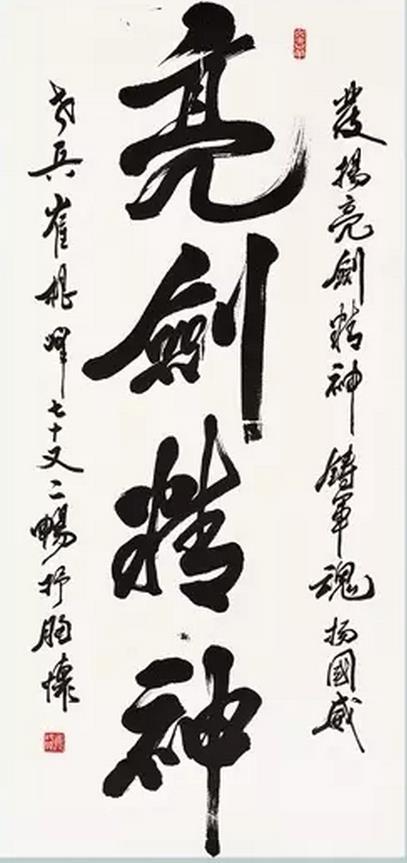 發揚亮劍精神鑄軍魂扬國威
亮劍精神
老兵崔七十又二暢抒胸懷